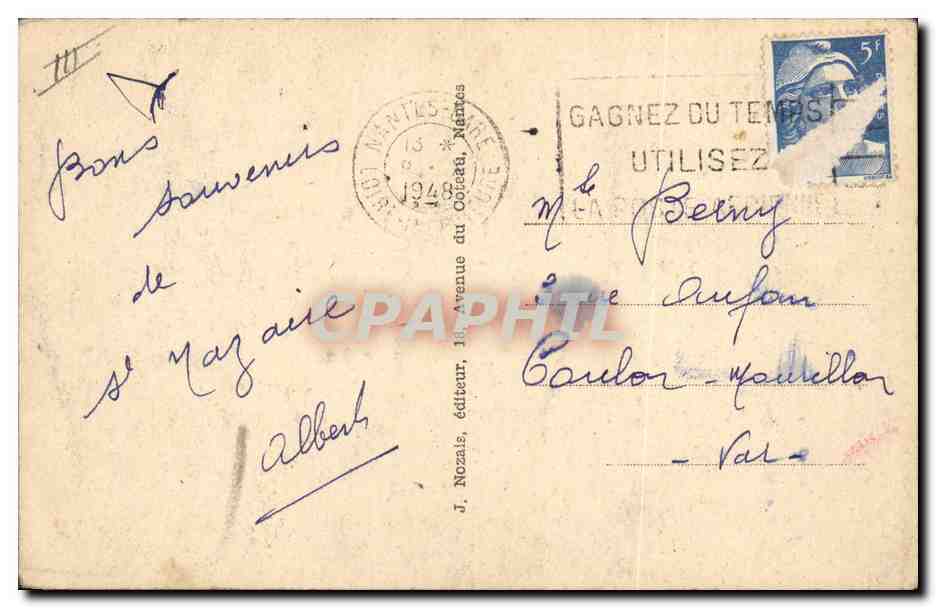 Bons
souvenirs
de
St Nazaire
Albert
J. Nozais, éditeur, 18, Avenue du Coteau, Nantes
NANTES-GARE
13 *
1948
LOIRE
GAGNEZ DU TEMPS
UTILISEZ
LA
5F
Mlle Berny
rue
Toulon-Mourillon
- Var -
CPAPHIL